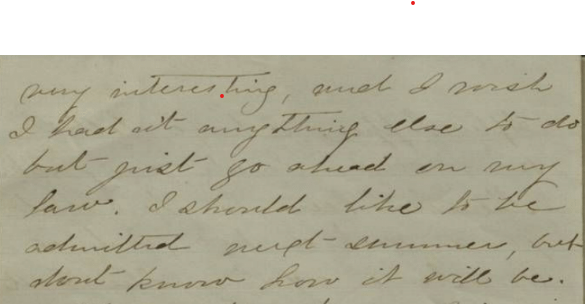 very interesting, and I wish
I had n't anything else to do
but just go ahead on my
law. I should like to be
admitted next summer, but
dont know how it will be.